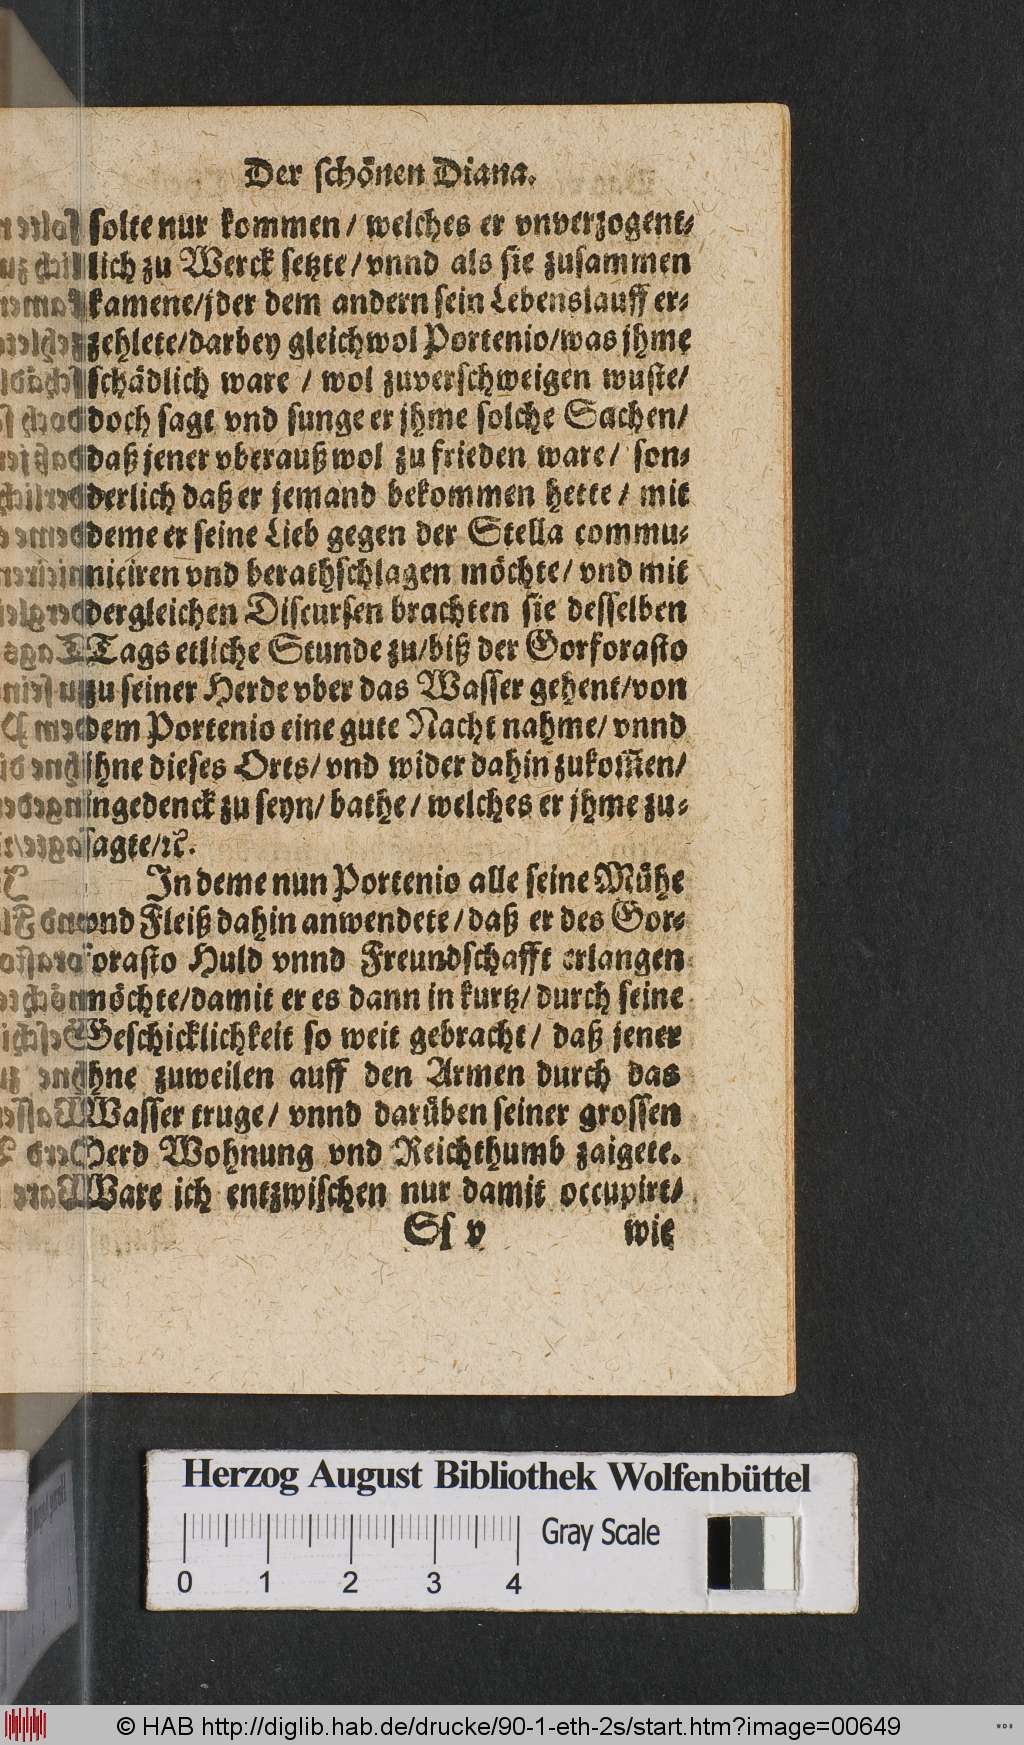 Der ſchönen Diana.
ſolte nur kommen / welches er vnverzogent-
lich zu Werck ſetzte / vnnd als ſie zuſammen
kamene/jder dem andern ſein Lebenslauff er-
zehlete/darbey gleichwol Portenio/was jhme
ſchädlich ware / wol zuverſchweigen wuſte/
doch ſagt vnd ſunge er jhme ſolche Sachen/
daß jener vberauß wol zu frieden ware / ſon-
derlich daß er jemand bekommen hette / mit
deme er ſeine Lieb gegen der Stella commu-
niciren vnd berathſchlagen möchte/ vnd mit
dergleichen Diſcurſen brachten ſie deſſelben
Tags etliche Stunde zu/biß der Gorforaſto
zu ſeiner Herde vber das Waſſer gehent/von
dem Portenio eine gute Nacht nahme/ vnnd
jhne dieſes Orts/ vnd wider dahin zukom̃en/
ingedenck zu ſeyn/ bathe / welches er jhme zu-
ſagte/ꝛc.
In deme nun Portenio alle ſeine Mühe
vnd Fleiß dahin anwendete / daß er des Gor-
foraſto Huld vnnd Freundſchafft erlangen
möchte/damit er es dann in kurtz/ durch ſeine
Geſchicklichkeit ſo weit gebracht / daß jener
jhne zuweilen auff den Armen durch das
Waſſer truge/ vnnd darüben ſeiner groſſen
Herd Wohnung vnd Reichthumb zaigete.
Ware ich entzwiſchen nur damit occupirt/
Sſ v wie
Herzog August Bibliothek Wolfenbüttel
Gray Scale
0 1 2 3 4
© HAB http://diglib.hab.de/drucke/90-1-eth-2s/start.htm?image=00649